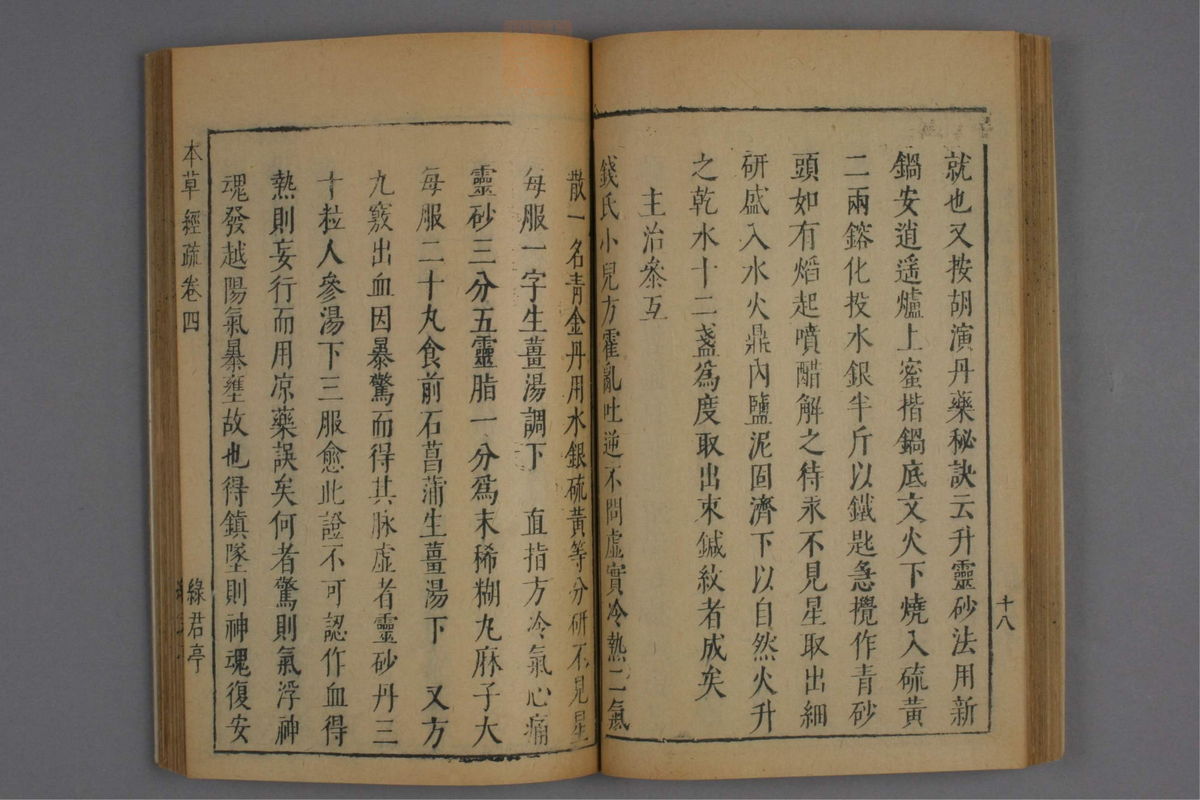 就也又按胡演丹藥秘訣云升靈砂法用新
鍋安逍遥爐上蜜揩鍋底文火下燒入硫黄
二兩鎔化投水銀半斤以鐵匙急攪作青砂
頭如有熖起噴醋解之待汞不見星取出細
研盛入水火鼎內鹽泥固濟下以自然火升
之乾水十二盞爲度取出束鍼紋者成矣
主治參互
錢氏小兒方霍亂吐逆不問虛實冷熱二氣
十八
散一名青金丹用水銀硫黃等分研不見星
每服一字生薑湯調下　直指方冷氣心痛
靈砂三分五靈脂一分爲末稀糊丸麻子大
每服二十丸食前石菖蒲生薑湯下　又方
九竅出血因暴驚而得其脉虛者靈砂丹三
十粒人參湯下三服愈此證不可認作血得
熱則妄行而用凉藥誤矣何者驚則氣浮神
魂發越陽氣暴壅故也得鎮墜則神魂復安
本草經疏卷四
綠君亭